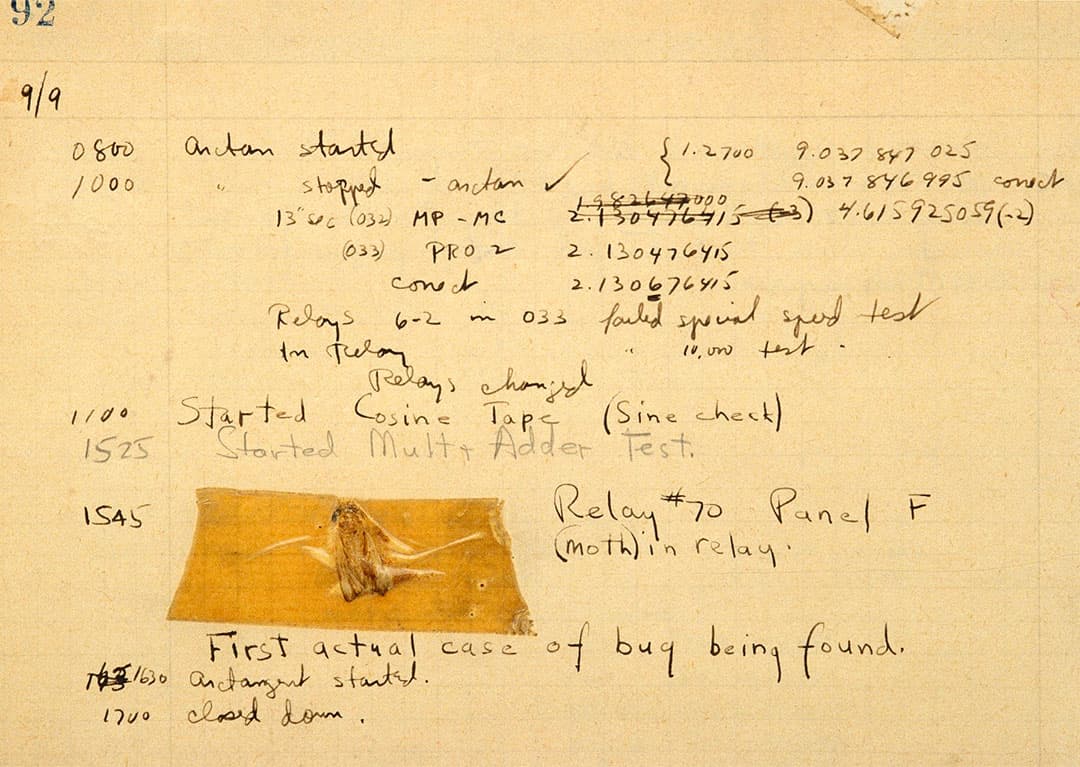 92
9/9
0800 arctan started { 1.2700 9.037 847 025
1000 " stopped - arctan ✓ 9.037 846 995 correct
13" sec (032) MP - MC 2.130476415 (-3) 4.615925059(-2)
(033) PRO 2 2.130476415
correct 2.130676415
Relays 6-2 in 033 failed special speed test
In Relay " 10,000 test .
Relays changed
1100 Started Cosine Tape (Sine check)
1525 Started Mult + Adder Test.
1545 Relay #70 Panel F
(moth) in relay.
First actual case of bug being found.
1630 arctangent started.
1700 closed down .